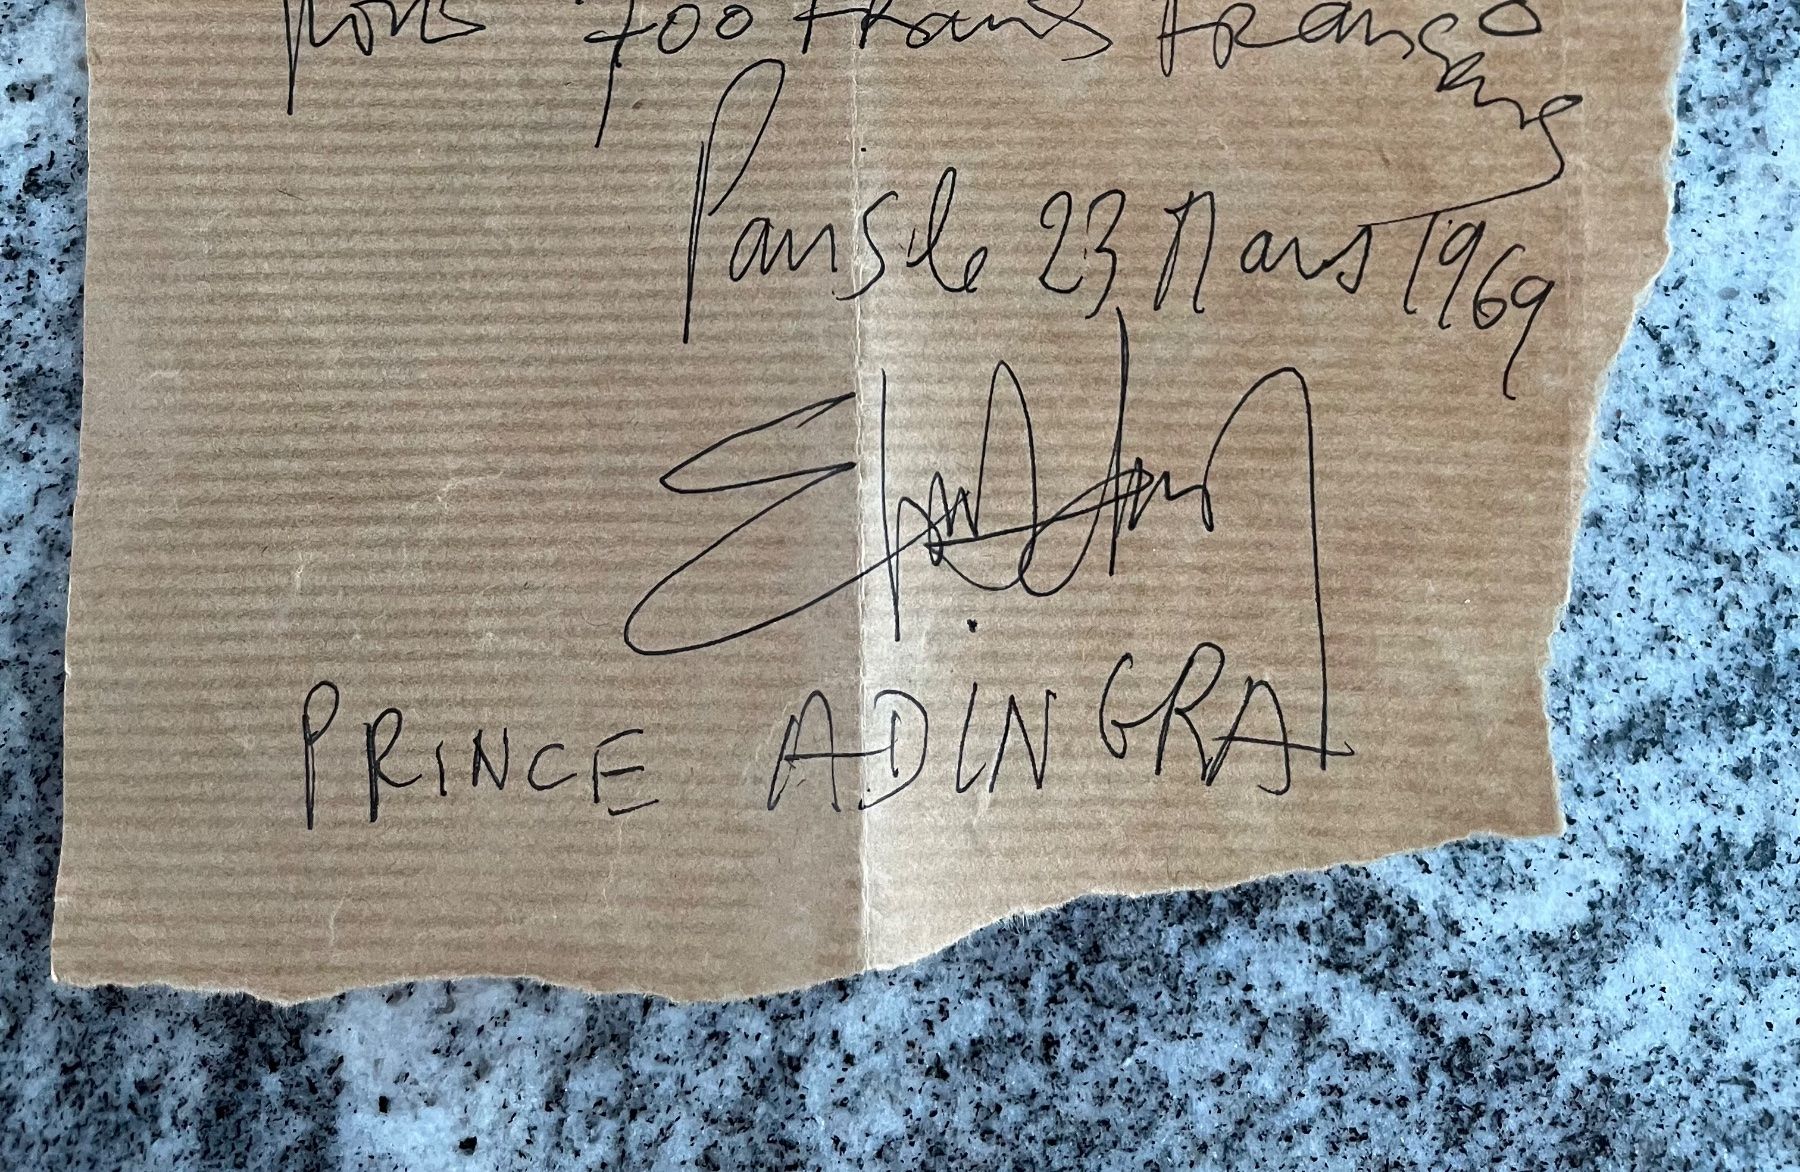 700 francs français
Paris le 23 Mars 1969
PRINCE ADINGRA